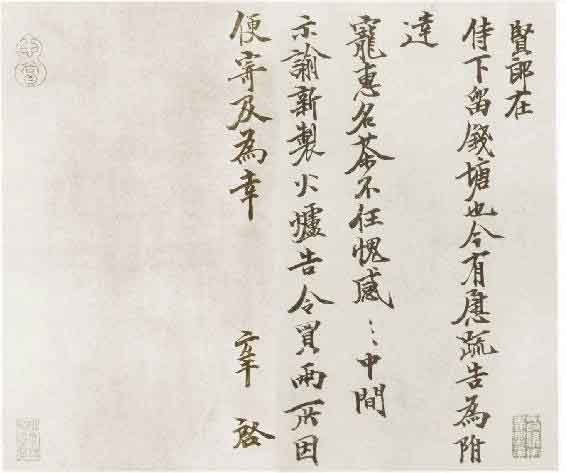 賢郎在
侍下留錢塘也今有慰疏告為附
達
寵惠名茶不任愧感〻中間
示諭新製火爐告令買兩所因
便寄及為幸 啓